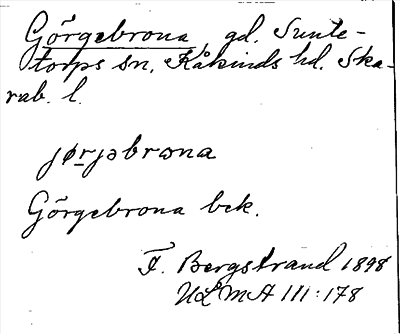 Görgebrona gd. Sunte-
torps sn, Kåkinds hd. Ska-
rab. l.
jørjəbrɷna
Görgebrona bek.
F. Bergstrand 1898
ULMA 111:178